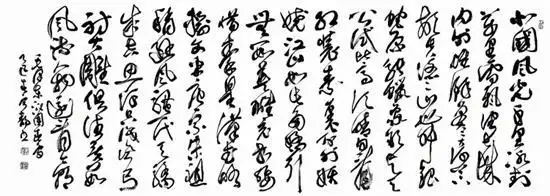 北國風光千里冰封
萬里雪飄望長城
內外惟餘莽莽大河上
下頓失滔滔山舞銀
蛇原馳蠟象欲与天
公試比高須晴日看
紅裝素裹分外妖
嬈江山如此多嬌引
無數英雄競折腰
惜秦皇漢武略
輸文采唐宗宋祖
稍遜風騷一代天驕
成吉思汗只識彎弓
射大雕俱往矣數
風流人物還看今朝
毛澤東沁園春雪